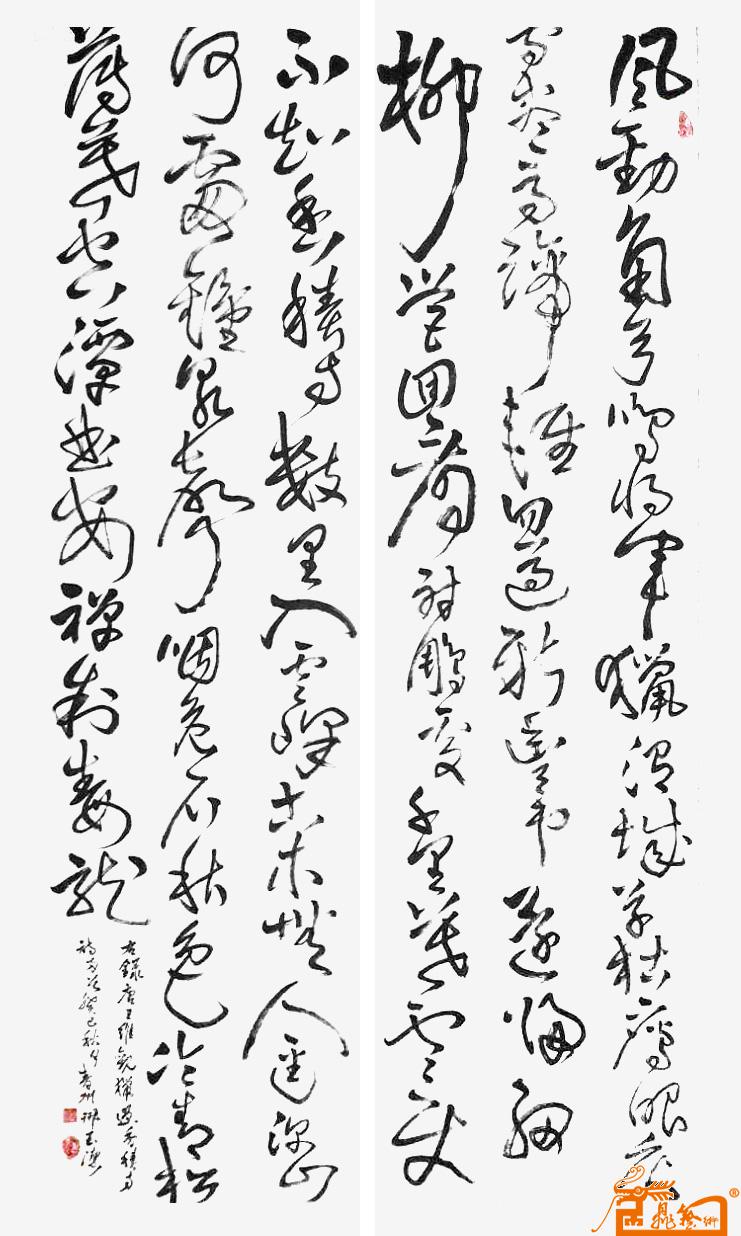 風勁角弓鳴將軍獵渭城草枯鷹眼疾
雪盡馬蹄輕忽過新豐市還歸細
柳營回看射鵰處千里暮雲平
不知香積寺數里入雲峰古木無人逕深山
何處鐘泉聲咽危石秋色冷青松
薄暮空潭曲安禪制毒龍
右錄唐王維觀獵過香積寺
詩癸巳秋月青州